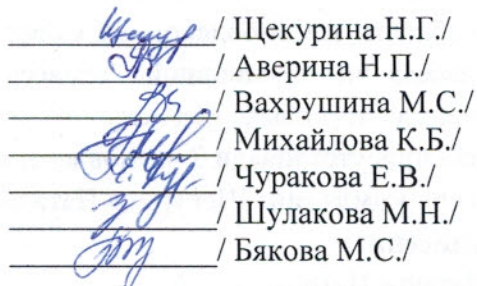 / Щекурина Н.Г./
/ Аверина Н.П./
/ Вахрушина М.С./
/ Михайлова К.Б./
/ Чуракова Е.В./
/ Шулакова М.Н./
/ Бякова М.С./